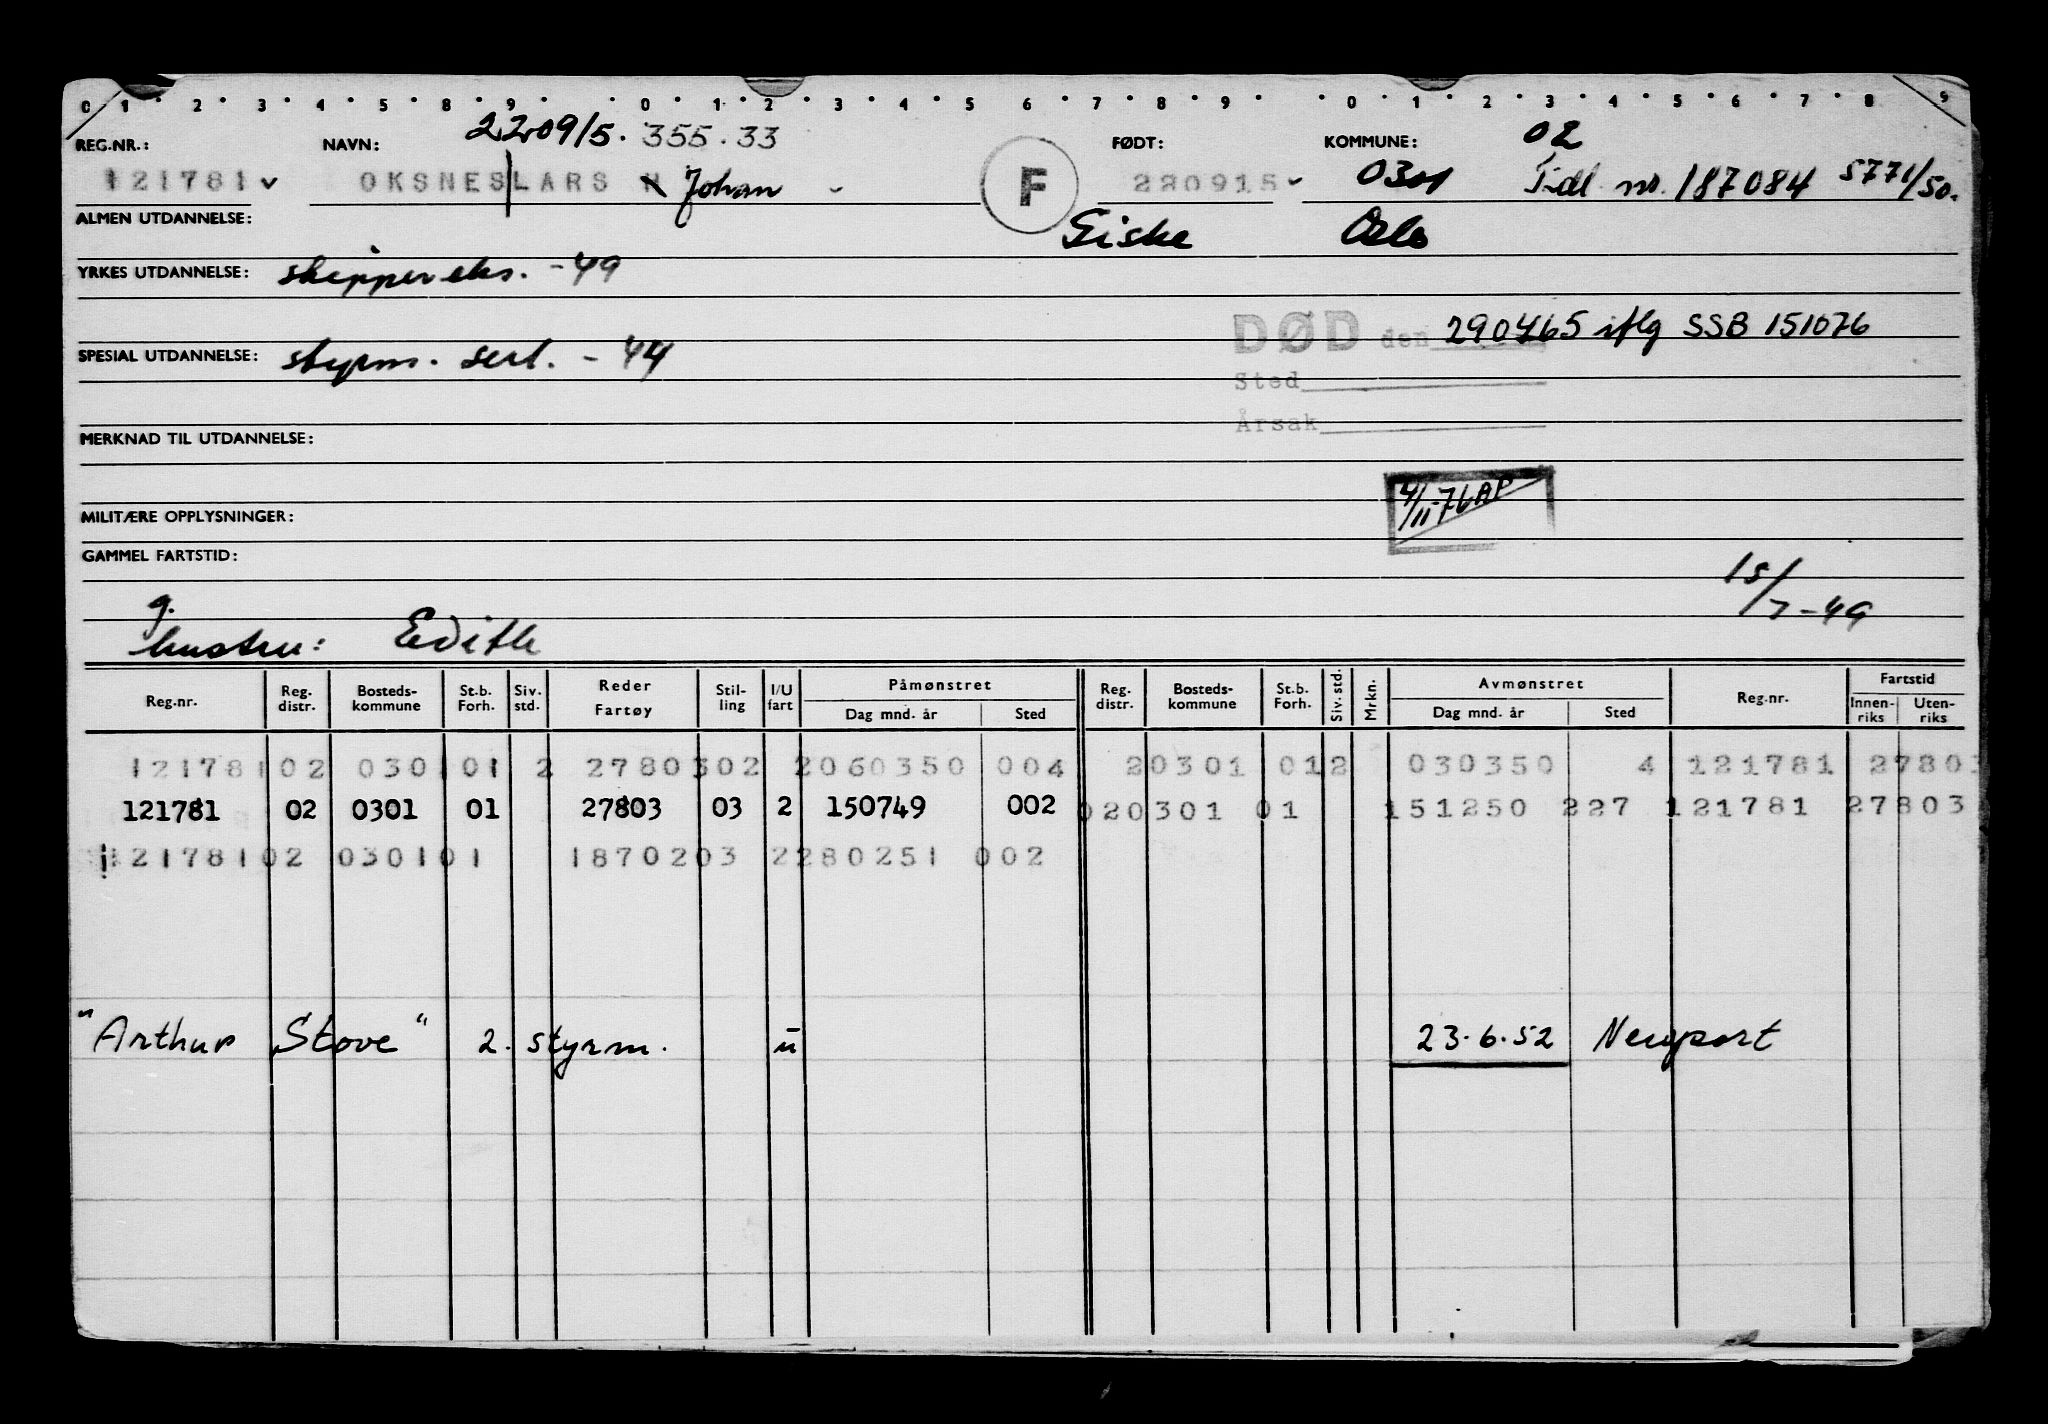 0 1 2 3 4 5 8 9 0 1 2 3 4 5 6 7 8 9 0 1 2 3 4 5 6 7 8 9
220915. 355.33 02
REG.NR.: NAVN: FØDT: KOMMUNE:
121781 OKSNES LARS Johan F 280915 0301 Tidl. nr. 187084 5771/50.
ALMEN UTDANNELSE: Giske Oslo
YRKES UTDANNELSE: skippereks. -49
DØD den 290465 iflg SSB 151076
SPESIAL UTDANNELSE: styrm. sert. - 44
Sted
Årsak
MERKNAD TIL UTDANNELSE:
4/11-76 AP
MILITÆRE OPPLYSNINGER:
GAMMEL FARTSTID:
15/7-49
g.
hustru: Edith
Reg.nr. Reg. distr. Bosteds- kommune St.b. Forh. Siv. std. Reder Fartøy Stil- ling I/U fart Påmønstret Dag mnd. år Sted Reg. distr. Bosteds- kommune St.b. Forh. Siv. std. Mrkn. Avmønstret Dag mnd. år Sted Reg.nr. Fartstid Innen- riks Uten- riks
121781 02 0301 01 2 27803 02 2 060350 004 2 0301 01 2 030350 4 121781 27803
121781 02 0301 01 27803 03 2 150749 002 02 0301 01 151250 227 121781 27803
121781 02 0301 01 18702 03 2 280251 002
"Arthur Stove" 2. styrm. u 23.6.52 Newport